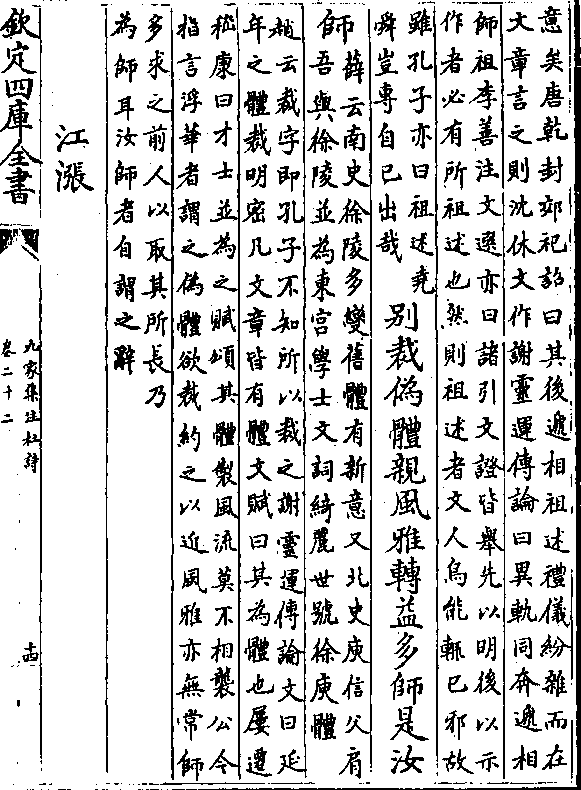 意矣唐乾封郊祀詔曰其後遞相祖述禮儀紛雜而在
文章言之則沈休文作謝靈運傳論曰異軌同奔遞相
師祖李善注文選亦曰諸引文證皆舉先以明後以示
作者必有所祖述也然則祖述者文人烏能輒已邪故
雖孔子亦曰祖述堯
舜豈專自已出哉
別裁偽體親風雅轉益多師是汝
師
薛云南史徐陵多變舊體有新意又北史庾信父肩
吾與徐陵並為東宮學士文詞綺麗世號徐庾體
趙云裁字即孔子不知所以裁之謝靈運傳論文曰延
年之體裁明密凡文章皆有體文賦曰其為體也屢遷
嵇康曰才士並為之賦頌其體製風流莫不相襲公今
指言浮華者謂之偽體欲裁約之以近風雅亦無常師
多求之前人以取其所長乃
為師耳汝師者自謂之辭
江漲
欽定四庫全書
九家集注杜詩
卷二十二
十四